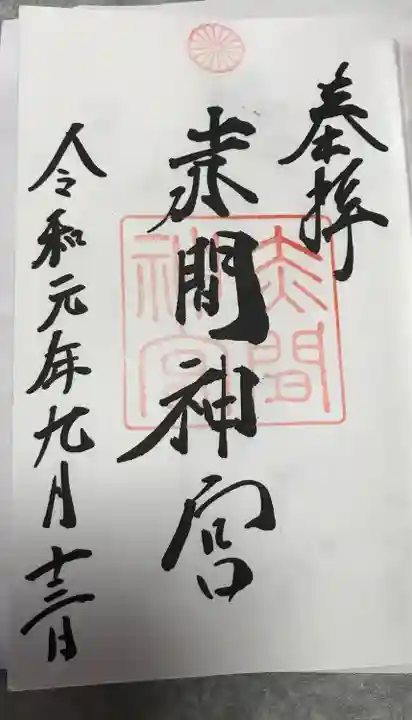 奉拝
赤間神宮
赤間神宮
令和元年九月十三日